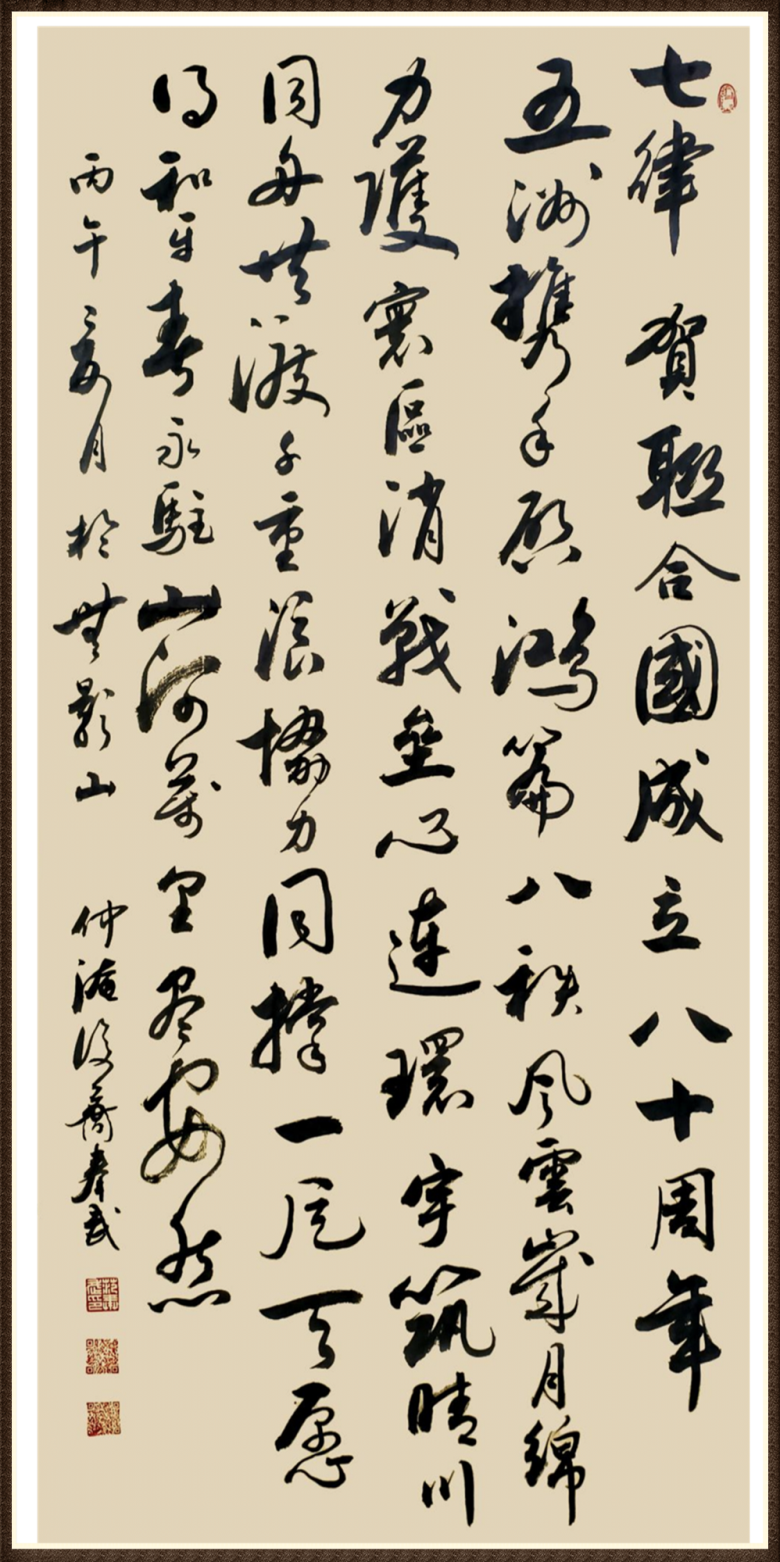 七律 賀聯合國成立八十周年
五洲携手启鴻篇八秩风雲歲月綿
力護寰區消戰壘心連環宇筑晴川
同舟共渡千重浪協力同撐一片天愿
得和平春永駐山河萬里尽安然
丙午夏月於無影山 仲淹後裔武